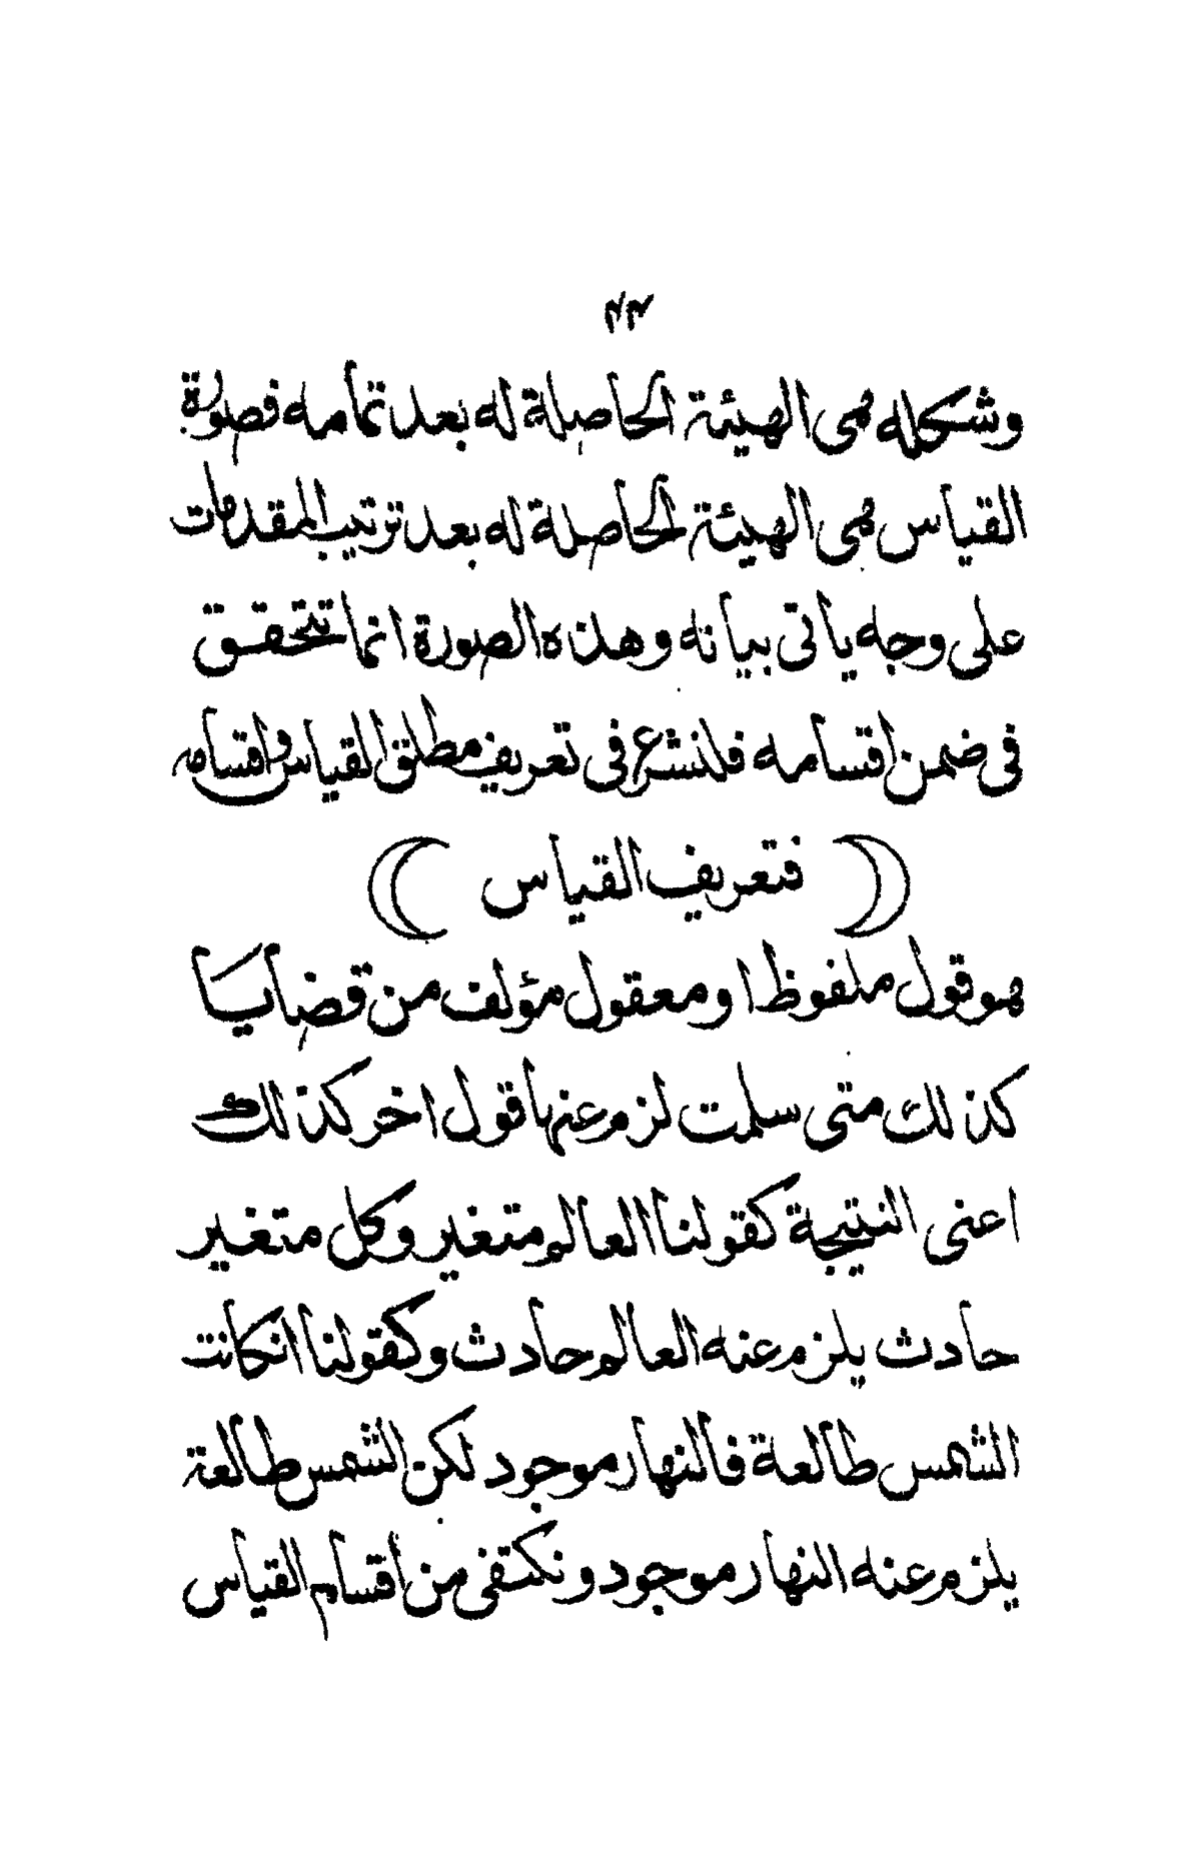 وشكله هى الهيئة الحاصلة له بعد تمامه فصورة
القياس هى الهيئة الحاصلة له بعد ترتيب المقدمات
على وجه ياتى بيانه وهذه الصورة انما تتحقق
فى ضمن اقسامه فلنشرع فى تعريف مطلق القياس واقسامه
( فتعريف القياس )
هو قول ملفوظ او معقول مؤلف من قضايا
كذلك متى سلمت لزم عنها قول اخر كذلك
اعنى النتيجة كقولنا العالم متغير وكل متغير
حادث يلزم عنه العالم حادث وكقولنا ان كانت
الشمس طالعة فالنهار موجود لكن الشمس طالعة
يلزم عنه النهار موجود ونكتفى من أقسام القياس